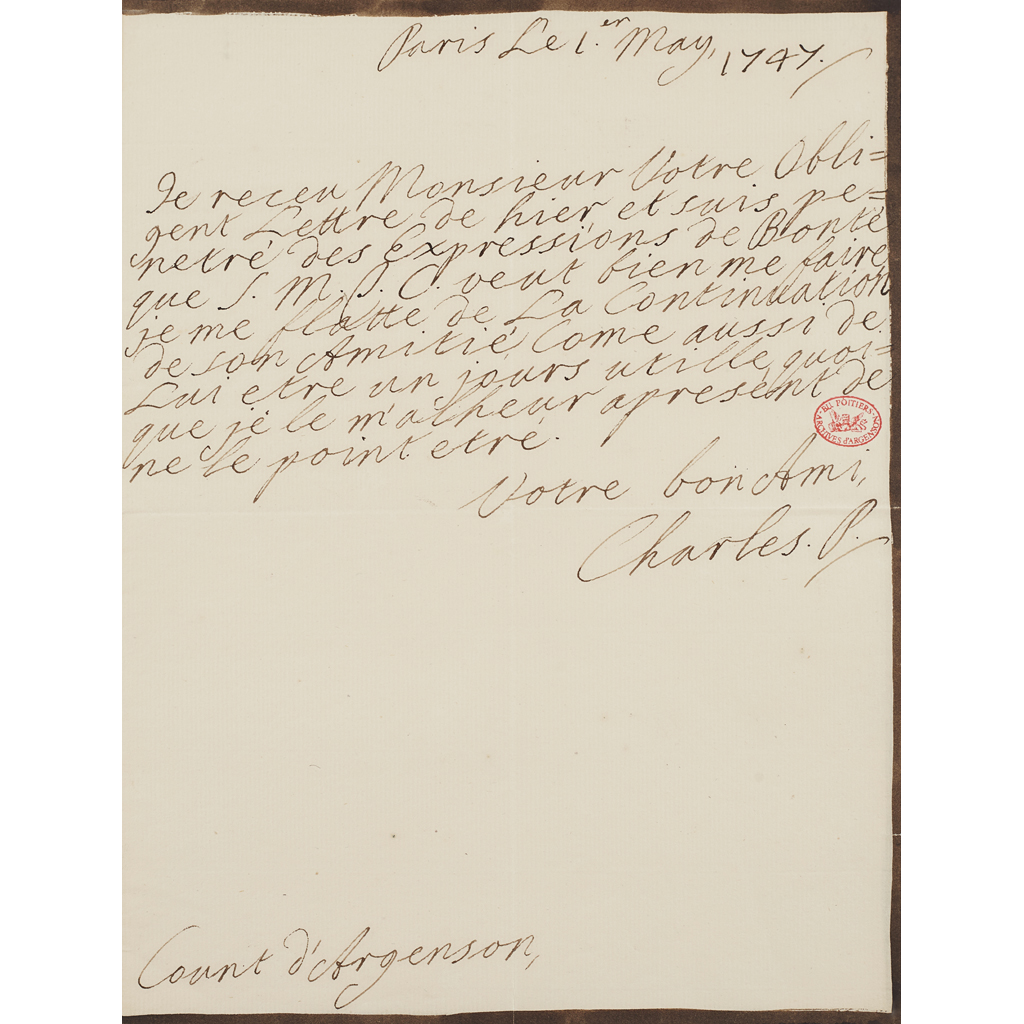 Paris Le 1.er May, 1747.
Je receu Monsieur Votre Obli=
gent Lettre de hier, et suis pe=
netré des Expressions de Bonté
que S. M. T. C. veut bien me faire,
je me flatte de La Continuation
de son Amitié Come aussi de
Lui etre un jours utille, quoi=
que je le malheur apresent de
ne le point etré.
Votre bon Ami,
Charles. P.
BU. POITIERS.
ARCHIVES d'ARGENSON
Count d'Argenson,